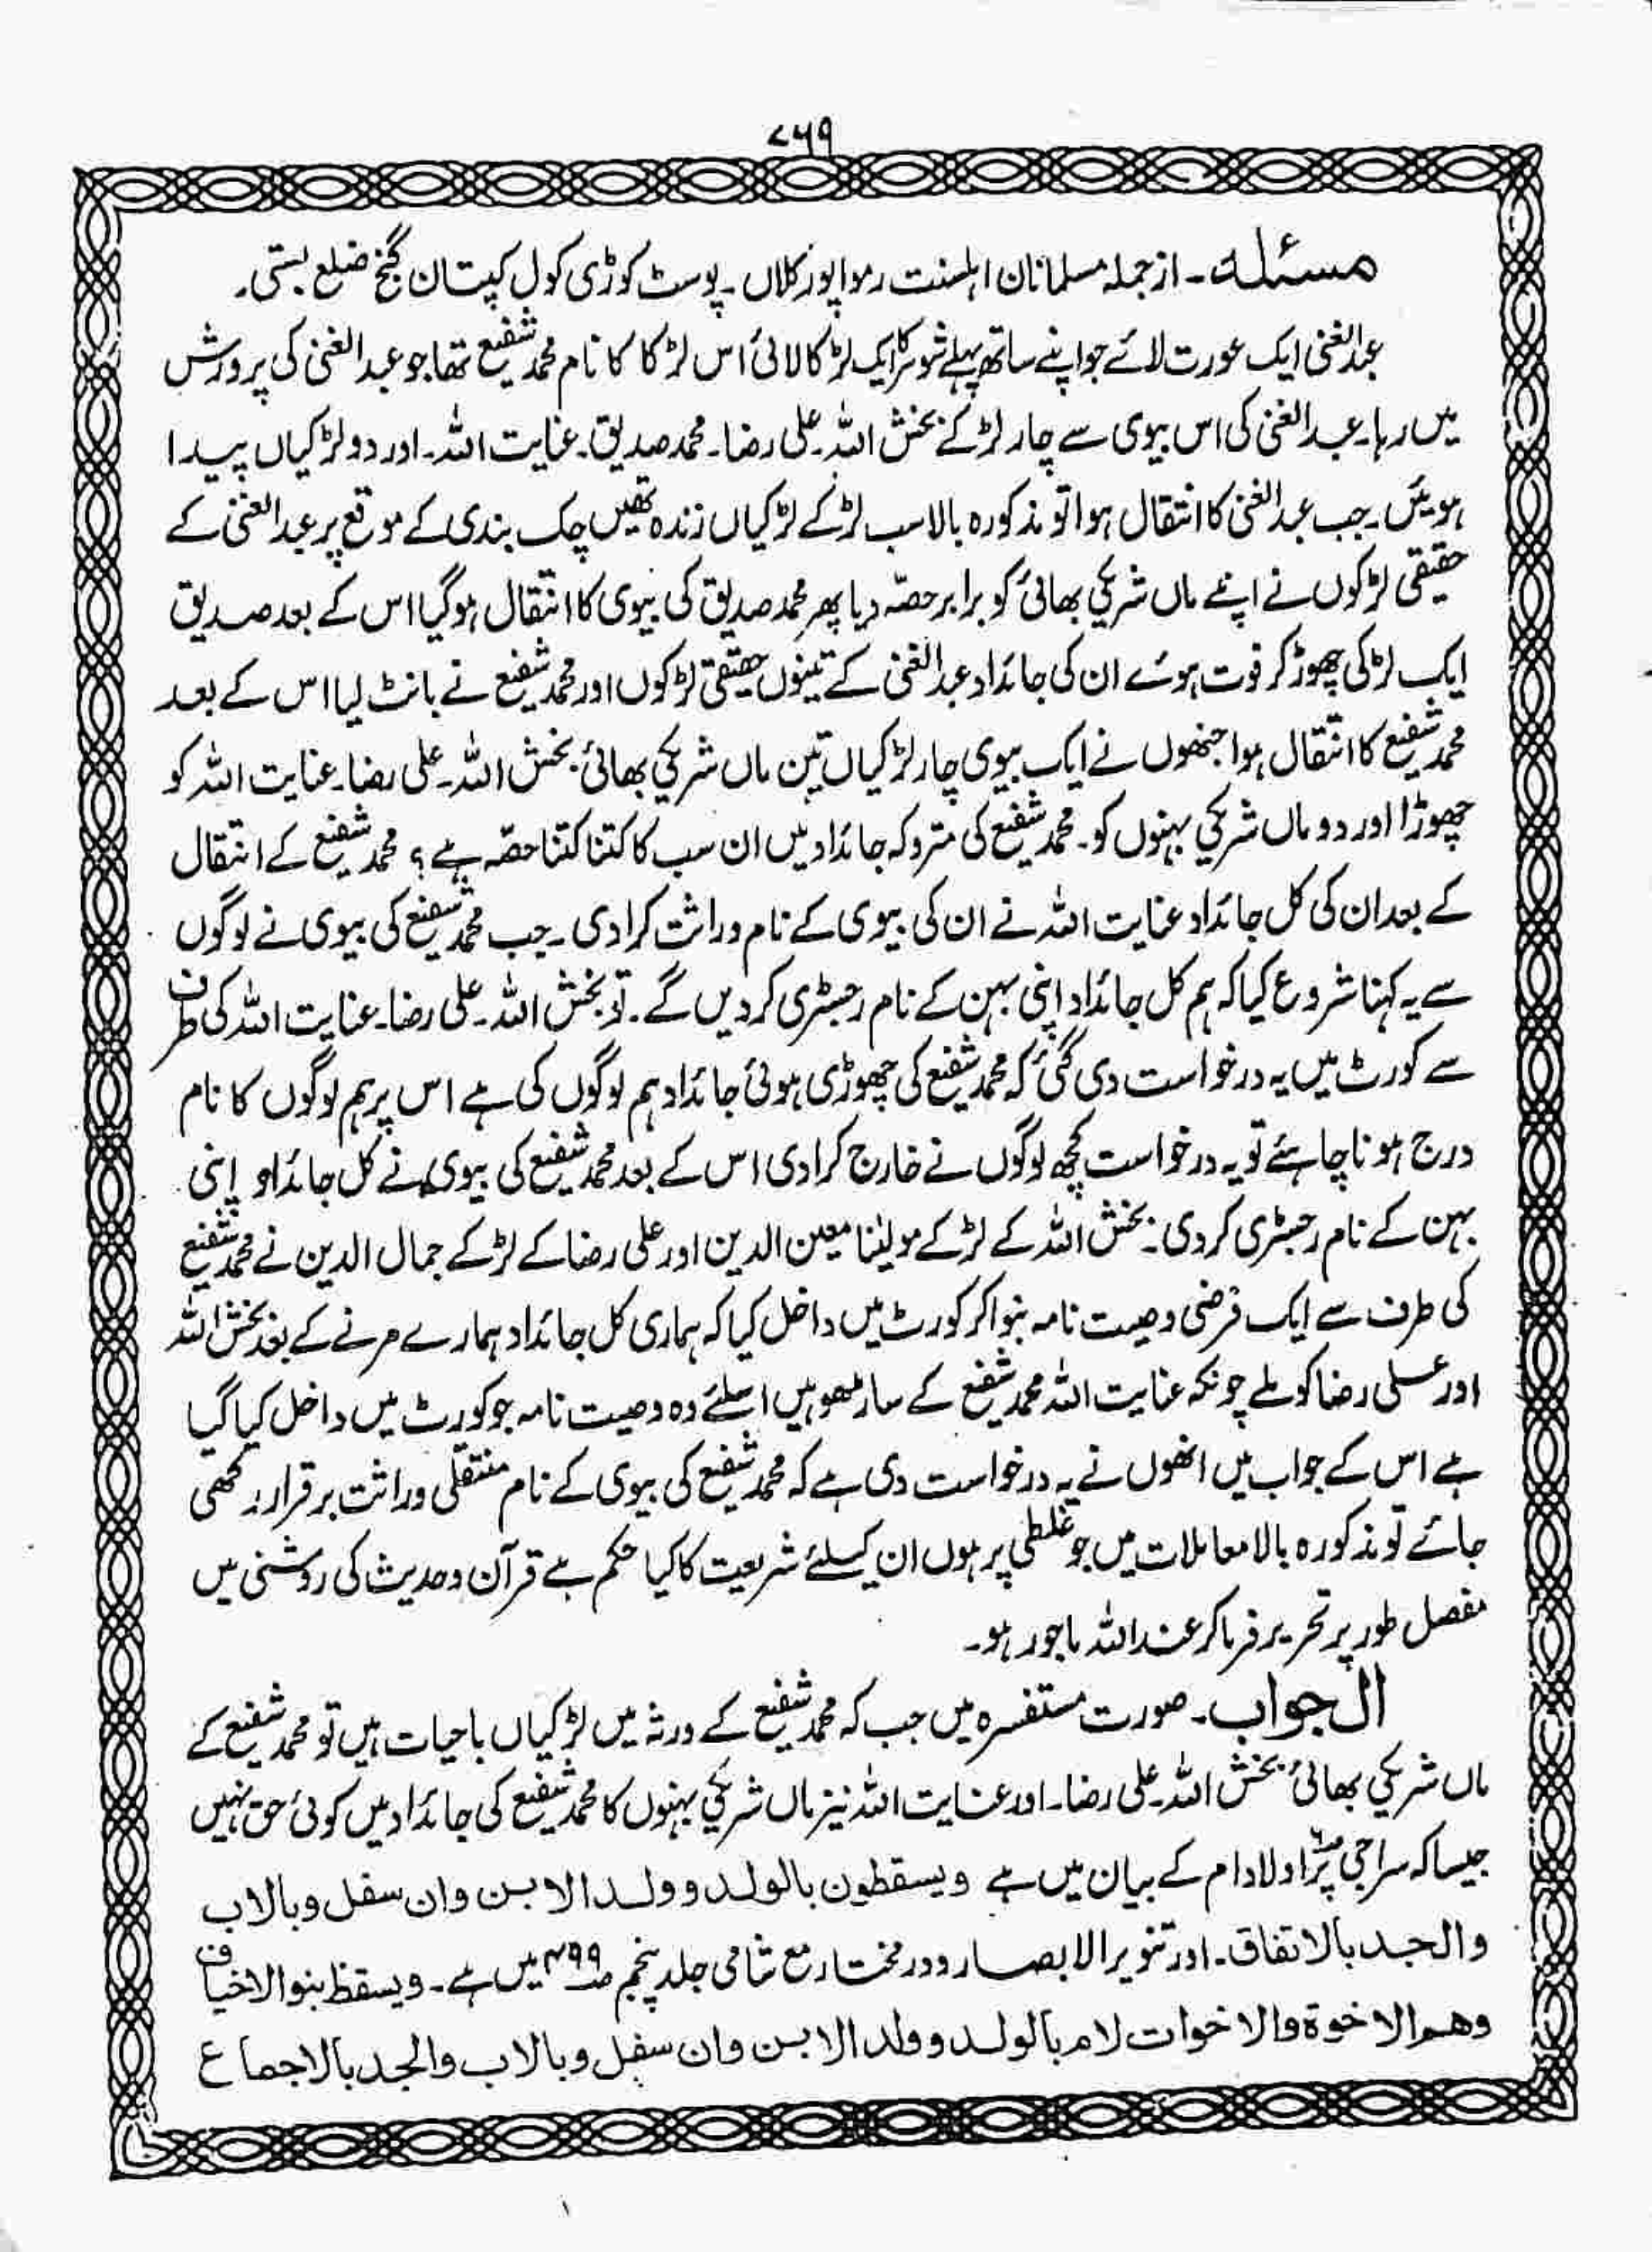 ۷۶۹
مسئلہ ۔ از جملہ مسلمانان اہلسنت رمواپور کلاں ۔ پوسٹ کوڑی کول کپتان گنج ضلع بستی ۔
عبدالغنی ایک عورت لائے جو اپنے ساتھ پہلے شوہر کا ایک لڑکا لائی اس لڑکا کا نام محمد شفیع تھا جو عبدالغنی کی پرورش
میں رہا۔ عبدالغنی کی اس بیوی سے چار لڑکے بخش اللہ۔ علی رضا۔ محمد صدیق۔ عنایت اللہ۔ اور دو لڑکیاں پیدا
ہوئیں۔ جب عبدالغنی کا انتقال ہوا تو مذکورہ بالا سب لڑکے لڑکیاں زندہ تھیں چک بندی کے موقع پر عبدالغنی کے
حقیقی لڑکوں نے اپنے ماں شریکی بھائی کو برابر حصّہ دیا پھر محمد صدیق کی بیوی کا انتقال ہوگیا اس کے بعد صدیق
ایک لڑکی چھوڑ کر فوت ہوئے ان کی جائداد عبدالغنی کے تینوں حقیقی لڑکوں اور محمد شفیع نے بانٹ لیا اس کے بعد
محمد شفیع کا انتقال ہوا جنھوں نے ایک بیوی چار لڑکیاں تین ماں شریکی بھائی بخش اللہ۔ علی رضا۔ عنایت اللہ کو
چھوڑا اور دو ماں شریکی بہنوں کو۔ محمد شفیع کی متروکہ جائداد میں ان سب کا کتنا کتنا حصّہ ہے؟ محمد شفیع کے انتقال
کے بعد ان کی کل جائداد عنایت اللہ نے ان کی بیوی کے نام وراثت کرادی ۔ جب محمد شفیع کی بیوی نے لوگوں
سے یہ کہنا شروع کیا کہ ہم کل جائداد اپنی بہن کے نام رجسٹری کردیں گے۔ تو بخش اللہ۔ علی رضا۔ عنایت اللہ کی طرف
سے کورٹ میں یہ درخواست دی گئی کہ محمد شفیع کی چھوڑی ہوئی جائداد ہم لوگوں کی ہے اس پر ہم لوگوں کا نام
درج ہونا چاہئے تو یہ درخواست کچھ لوگوں نے خارج کرادی اس کے بعد محمد شفیع کی بیوی نے کل جائداد اپنی
بہن کے نام رجسٹری کردی۔ بخش اللہ کے لڑکے مولینا معین الدین اور علی رضا کے لڑکے جمال الدین نے محمد شفیع
کی طرف سے ایک فرضی وصیت نامہ بنوا کر کورٹ میں داخل کیا کہ ہماری کل جائداد ہمارے مرنے کے بعد بخش اللہ
اور علی رضا کو ملے چونکہ عنایت اللہ محمد شفیع کے ساڑھو ہیں اسلئے وہ وصیت نامہ جو کورٹ میں داخل کیا گیا
ہے اس کے جواب میں انھوں نے یہ درخواست دی ہے کہ محمد شفیع کی بیوی کے نام منتقلی وراثت برقرار رکھی
جائے تو مذکورہ بالا معاملات میں جو غلطی پر ہوں ان کیلئے شریعت کا کیا حکم ہے قرآن و حدیث کی روشنی میں
مفصل طور پر تحریر فرما کر عند اللہ ماجور ہو۔
الجواب ۔ صورت مستفسرہ میں جب کہ محمد شفیع کے ورثہ میں لڑکیاں باحیات ہیں تو محمد شفیع کے
ماں شریکی بھائی بخش اللہ۔ علی رضا۔ اور عنایت اللہ نیز ماں شریکی بہنوں کا محمد شفیع کی جائداد میں کوئی حق نہیں
جیسا کہ سراجی پر اولاد ام کے بیان میں ہے ویسقطون بالولد وولد الابن وان سفل وبالاب
والجد بالاتفاق۔ اور تنویر الابصار و در مختار مع شامی جلد پنجم ص۴۹۹ میں ہے۔ ویسقط بنوالاخیاف
وهم الاخوة والاخوات لام بالولد وولد الابن وان سفل وبالاب والجد بالاجماع